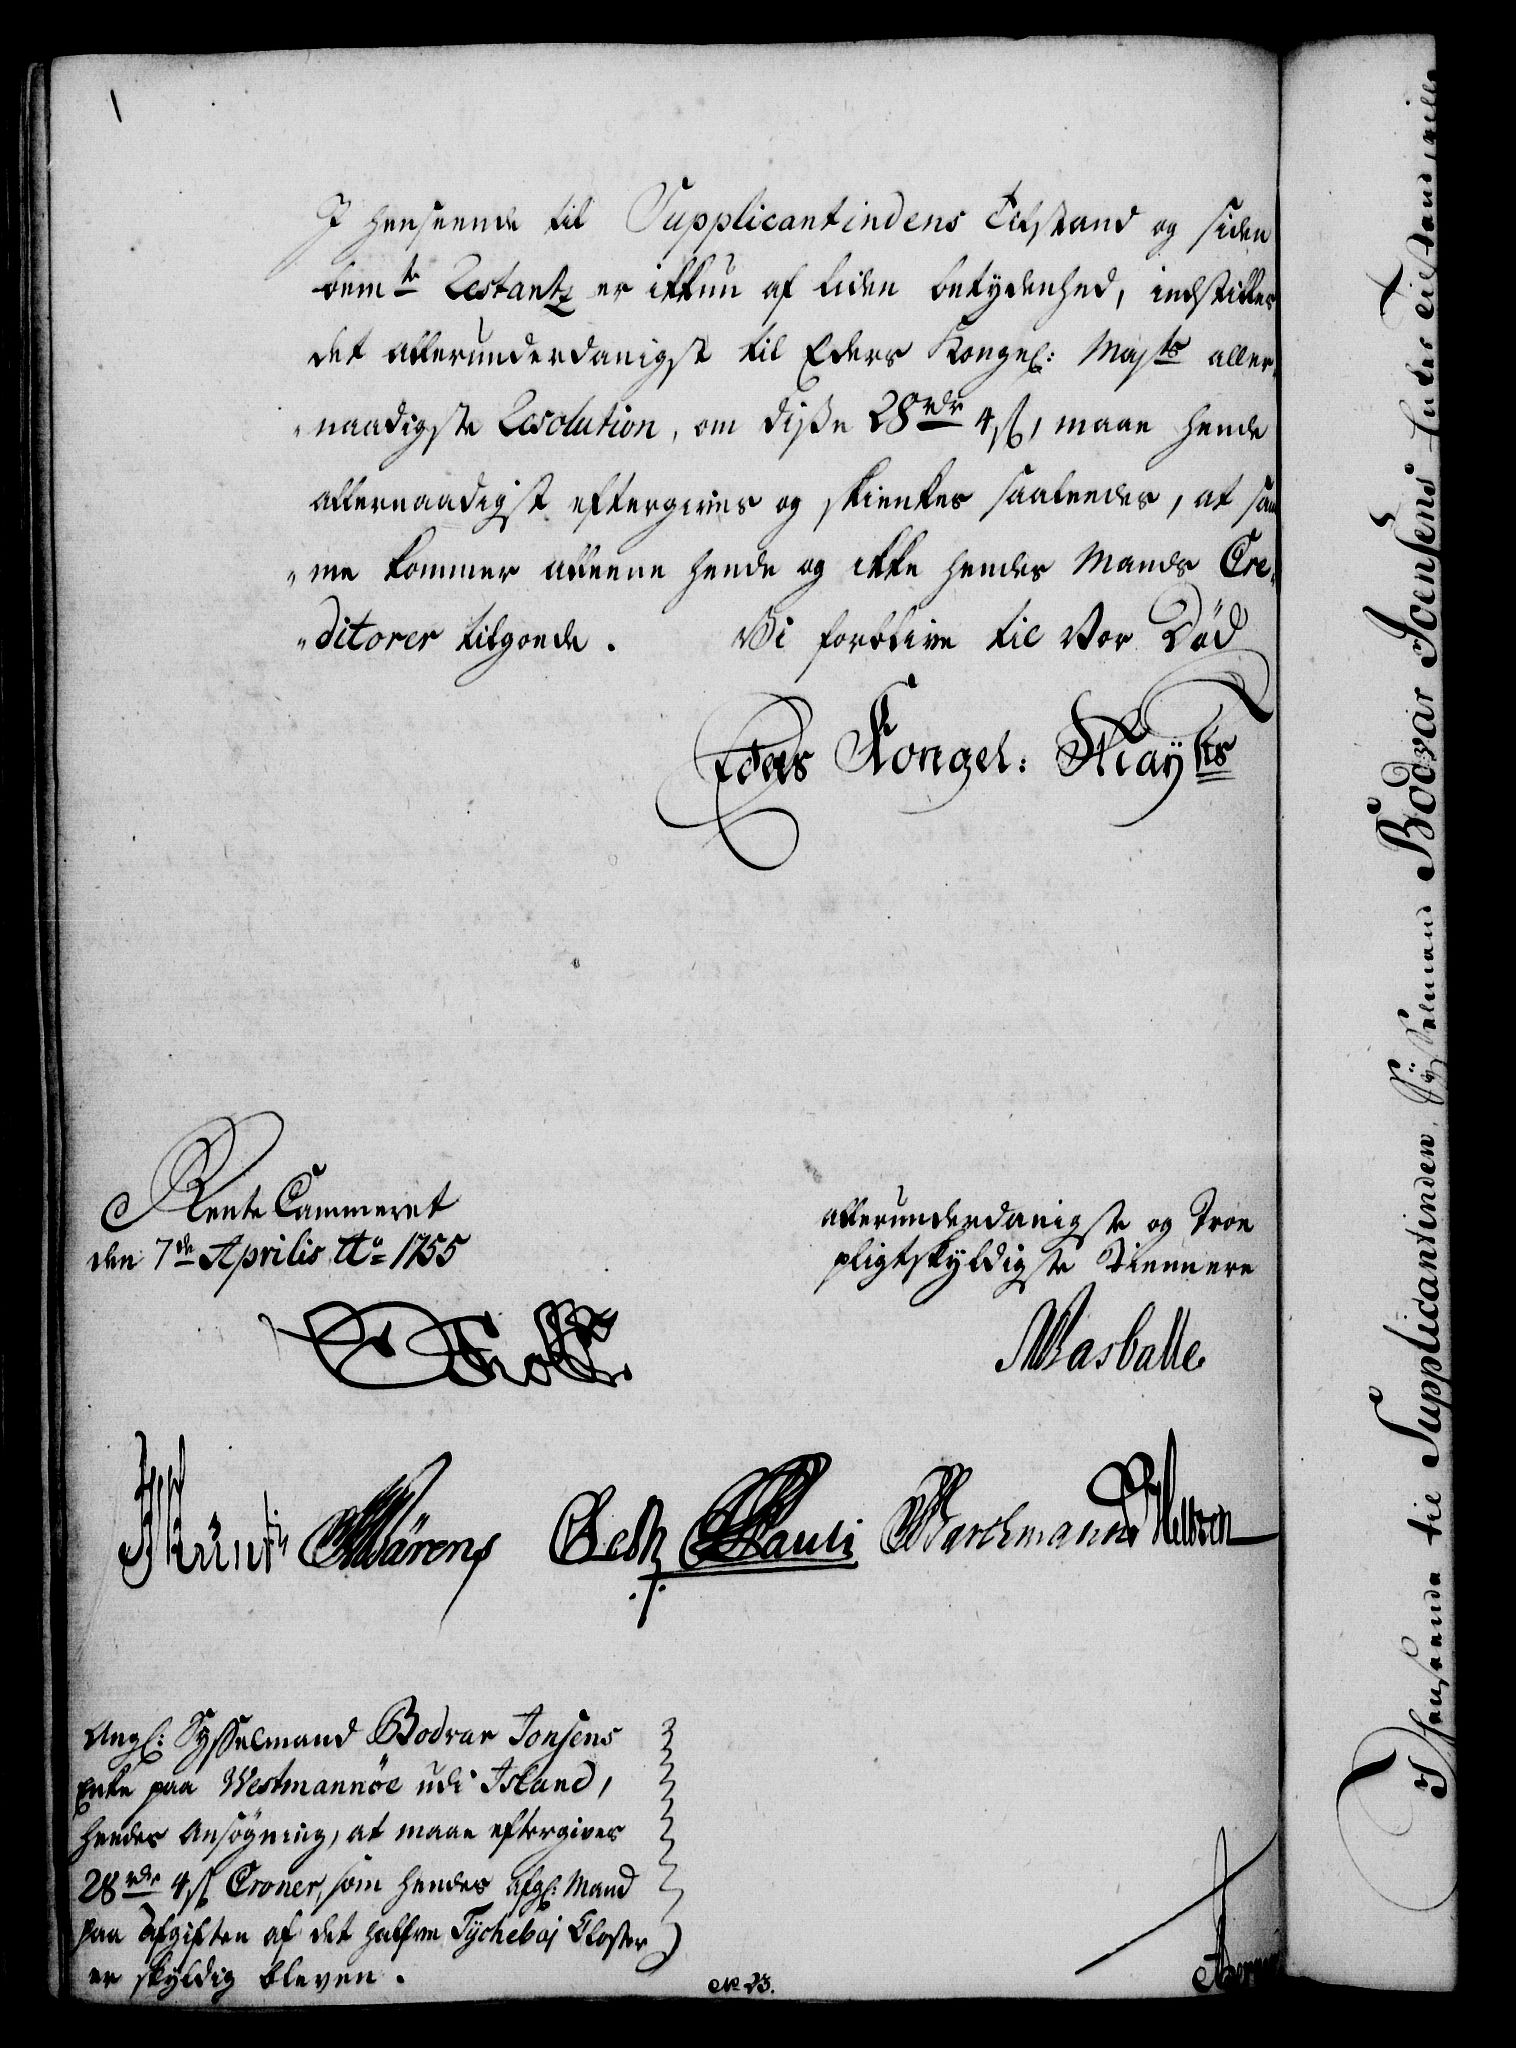 I henseende til Supplicantindens Tilstand og siden
bemte Restantz er ikkun af liden betydenhed, indstilles
det allerunderdanigst til Eders Kongel: Majts aller-
naadigste Resolution, om disse 28rdr 4ß, maae hende
allernaadigst eftergives og skienkes saaleedes, at sam-
me kommer alleene hende og ikke hendes Mands Cre-
ditorer tilgode. Vi forblive til Vor Död
Eders Kongel: Mayts
Rente Cammeret
den 7de Aprilis Ao 1755
allerunderdanigste og Troe
pligtskyldigste Tiennere
Holst
Wasballe
Wärens
Oeder
Pauli
Barchmann
Ang: Sysselmand Bodvar Jonsens
Enke paa Westmannöe udi Island,
hendes Ansögning, at maae eftergives
28rdr 4ß Croner, som hendes afg: Mand
paa Afgiften af det halfve Tycheboj Closter
er skyldig bleven.
No 23.
I henseende til Supplicantinden, Sysselmand Bodvar Joensens Enkes Tilstand, ville